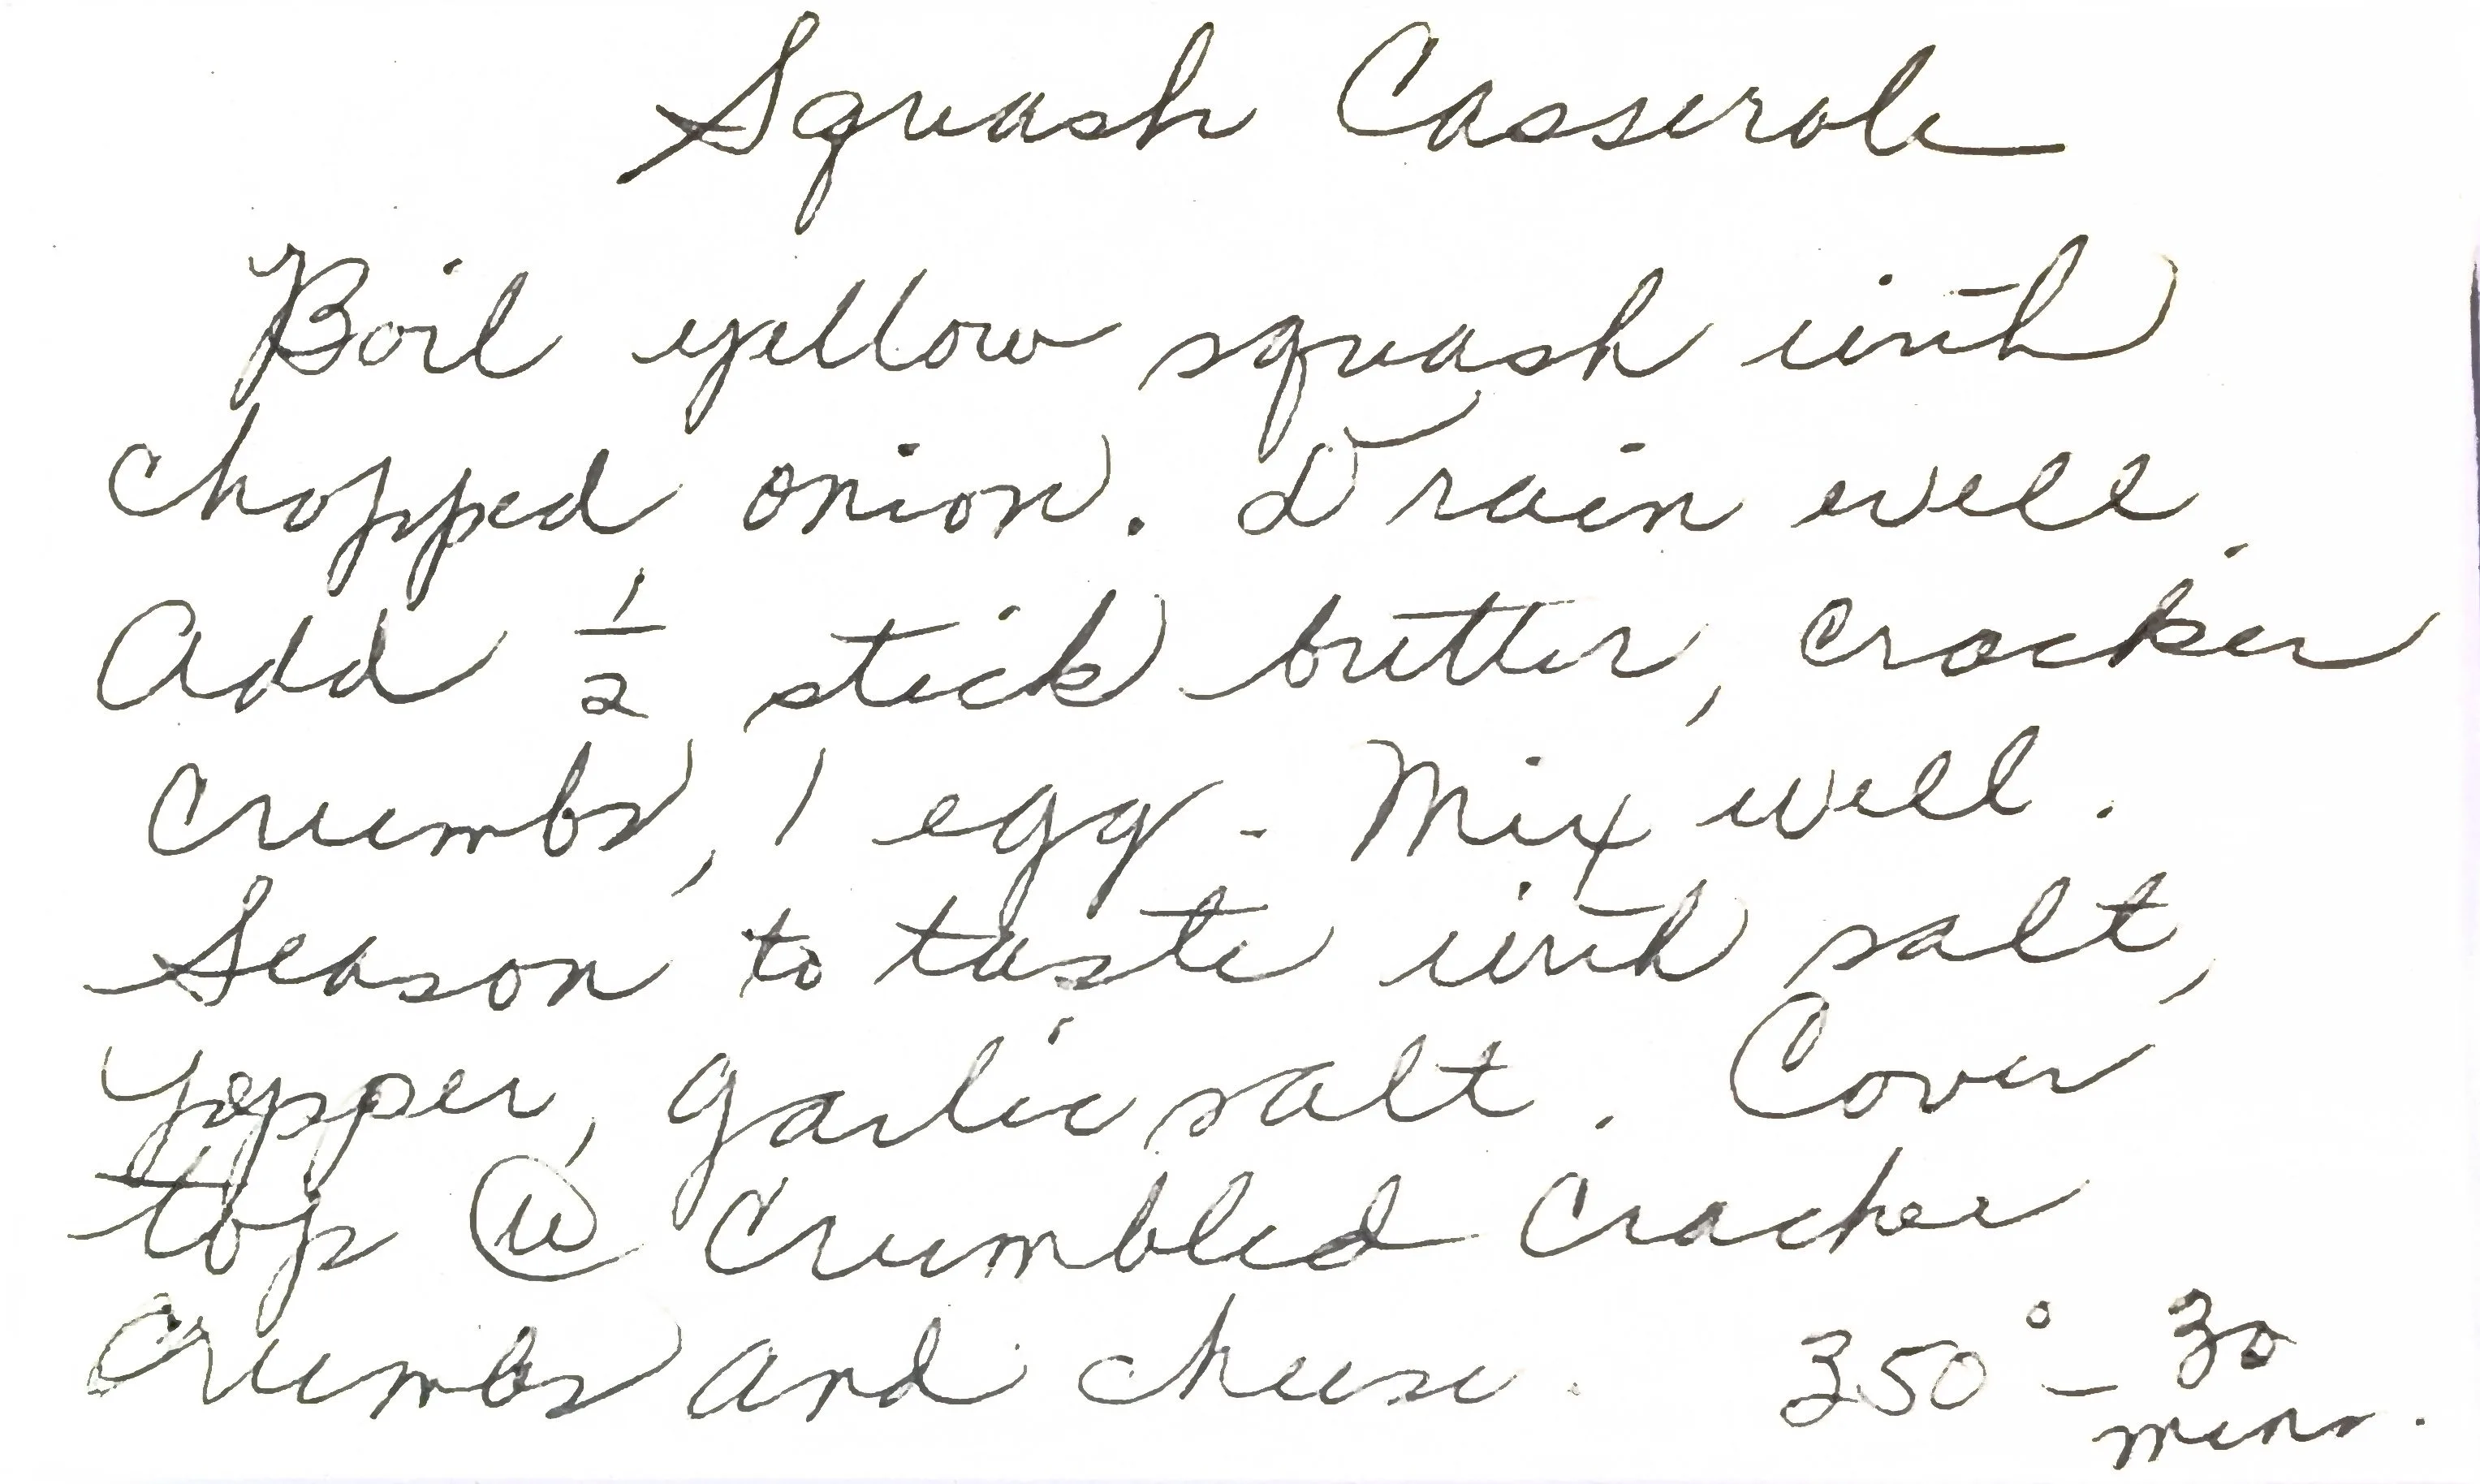 Squash Casserole
Boil yellow squash with
chopped onion. Drain well.
Add 1/2 stick butter, cracker
crumbs, 1 egg - Mix well.
Season to taste with salt,
pepper, garlic salt. Cover
top ⓦ crumbled cracker
crumbs and cheese. 350° - 30
mins.